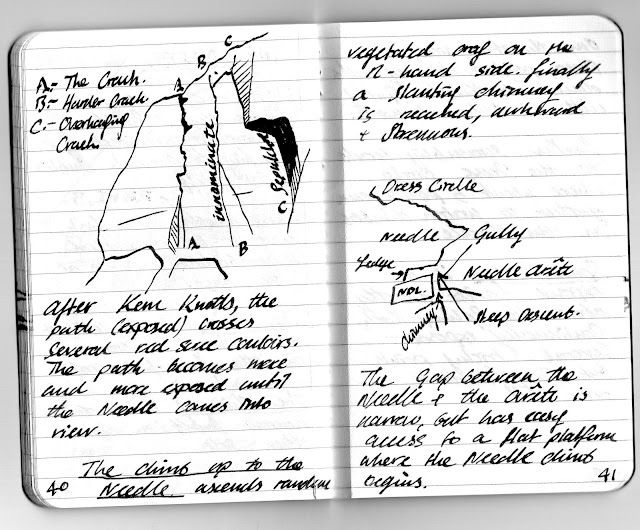 A:- The Crack.
B:- Harder Crack.
C:- Overhanging
Crack.
A
B
C
innominate
C. Sepulchre
A
B
After Kern Knotts, the
path (exposed) crosses
several red scree couloirs.
The path becomes more
and more exposed until
the Needle comes into
view.
The climb up to the
Needle ascends
40
vegetated crag on the
R-hand side. Finally
a slanting chimney
is reached, awkward
+ strenuous.
Dress Circle
Needle Gully
ledge
NDL.
Needle arête
Steep Descent.
chimney
The Gap between the
Needle & the arête is
narrow, but has easy
access to a flat platform
where the Needle climb
begins.
41